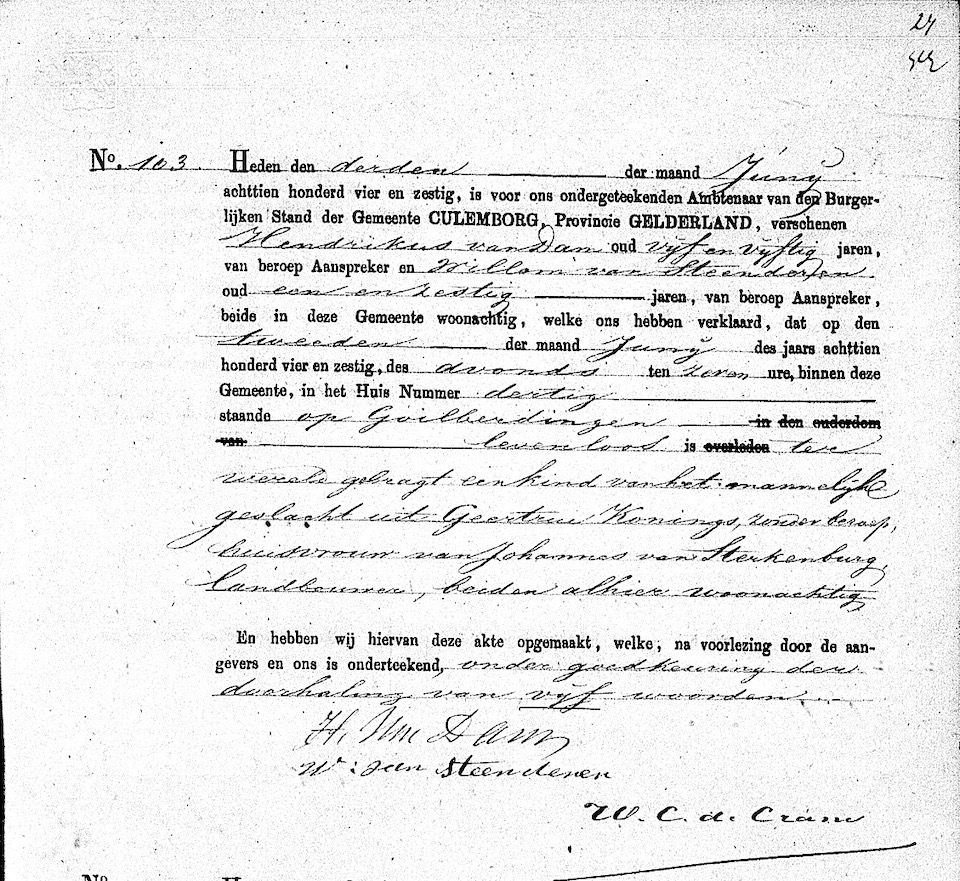 27
No. 103. Heden den derden der maand Juny
achttien honderd vier en zestig, is voor ons ondergeteekenden Ambtenaar van den Burger-
lijken Stand der Gemeente CULEMBORG, Provincie GELDERLAND, verschenen
Hendrikus van Dam oud vyf en vyftig jaren,
van beroep Aanspreker en Willem van Steenderen
oud een en zestig jaren, van beroep Aanspreker,
beide in deze Gemeente woonachtig, welke ons hebben verklaard, dat op den
tweeden der maand Juny des jaars achttien
honderd vier en zestig, des avonds ten zeven ure, binnen deze
Gemeente, in het Huis Nummer dertig
staande op Goilberdingen in den ouderdom
van levenloos is overleden ter
wereld gebragt een kind van het mannelyk
geslacht uit Geertrui Konings, zonder beroep,
huisvrouw van Johannes van Sterkenburg,
landbouwer, beiden alhier woonachtig
En hebben wij hiervan deze akte opgemaakt, welke, na voorlezing door de aan-
gevers en ons is onderteekend, onder goedkeuring der
doorhaling van vyf woorden.
H. Van Dam
W: van Steenderen
W. C. de Crane
No.